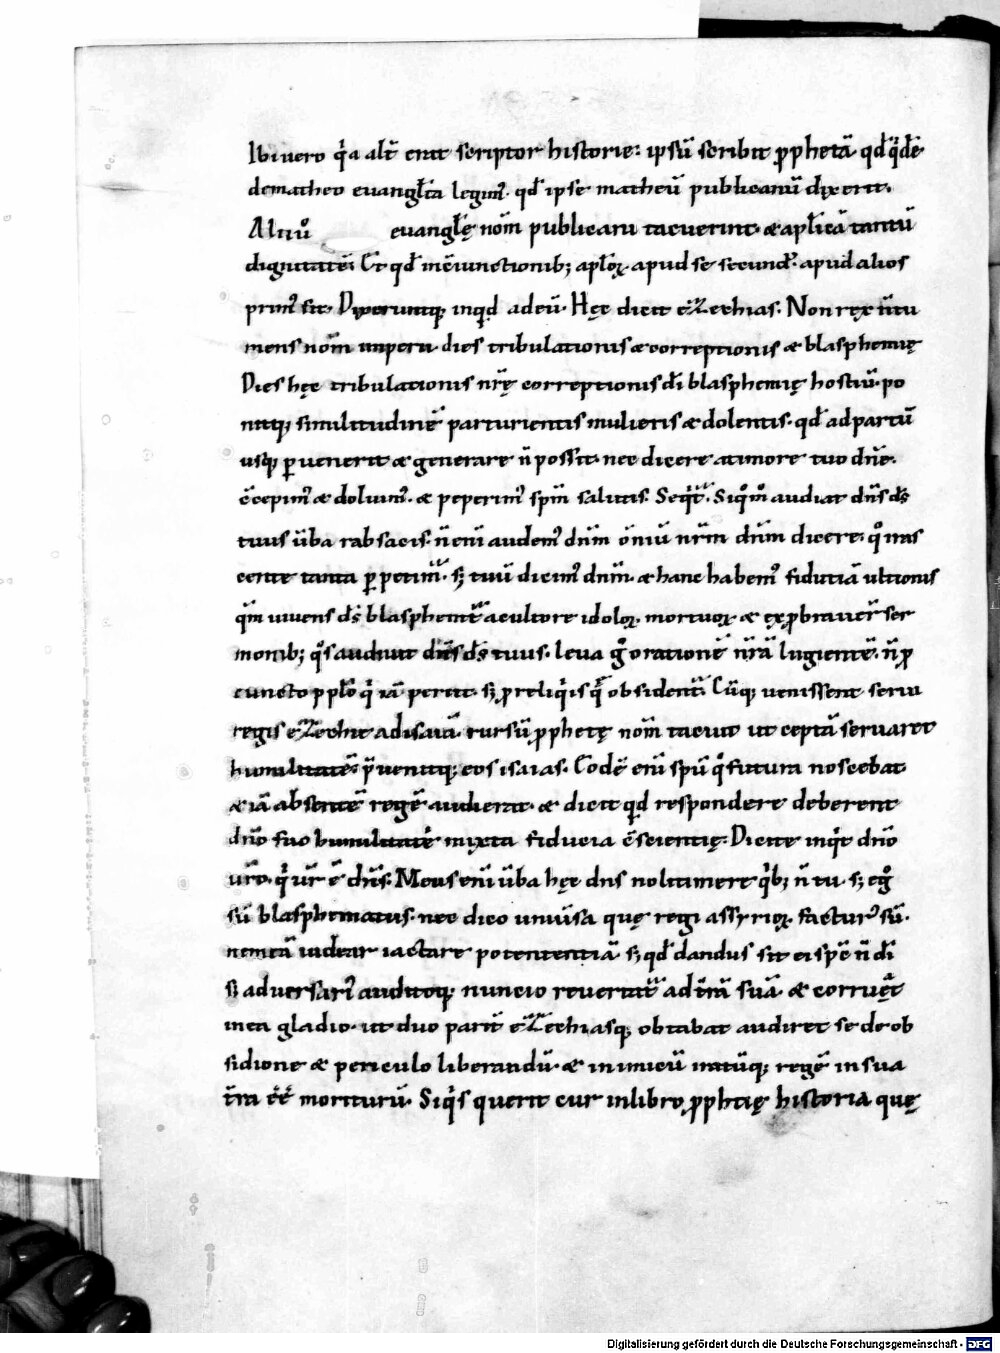 Ibi vero q̇a alt̄ erat scriptor historie; ipsū scribit p̱phetā qđ q̇dē
dematheo evangl̄ia legim᾽. qđ ipse matheū publicanū dixerit.
Aliiu᷒ evangl̄ę nom̄ publicani tacuerint. & apl̄icā tantū
dignitatē. Et qđ in c̄iunctionib; apl̄oꝝ. apud se secund᾽. apud alios
prim᾽ sit. Dixeruntq; inqđ adeū. Hęc dicit ezechias. Non rex n̄ tu
mens nom̄ imperii dies tribulationis & correptionis & blasphemię
Dies hęc tribulationis nr̄ę correptionis dī blasphemię hostiū. po
nitq; similitudinē parturientis mulieris & dolentis. qđ ad partū
usq; ꝑvenerit & generare n̄ possit. nec dicere a timore tuo dn̄e.
c̄cepim᾽ & doluim᾽. & peperim᾽ spm̄ salutis. Seqt̄. Siqͦmͦ audiat dn̄s d̄s
tuus ūba rabsacis. n̄ enī audem᾽ dn̄m om̄iū nr̄m dn̄m dicere. qͦ nas
cente tanta ꝑpetim᾽. sꝫ tuū dicim᾽ dn̄m. & hanc habem᾽ fidutiā ultionis
qm̄ vivens d̄s blasphemat᾽ a cultore idoloꝝ. mortuoꝝ & exp̱braverit ser
monib; q̇s audivit dn̄s d̄s tuus. Leva gͦ orationē nr̄ā lugientē. n̄ p̱
cuncto pplo q̇ iā periit. sꝫ p̱ reliq̇is q̇ obsident᾽. Cūq; venissent servi
regis ezechie ad isaiā. rursū p̱phetę nom̄ tacuit ut ceptā servaret
humilitatē. p̄venitq; eos isaias. Eodē enī spū q̇ futura noscebat
& iā absentē regē audierat. & dicit qd respondere deberent
dn̄o suo humilitatē mixta fiducia c̄scientię. Dicite inq̇t dn̄o
ur̄o. q̇ ur̄ ē dn̄s. Meus enī ūba hęc dns noli timere q̇b; n̄ tu. sꝫ egͦ
sū blasphematus. nec dico univ̄sa quę regi assyrioꝝ. factur᾽ sū.
ne meā videar iactare potententiā sꝫ qđ dandus sit ei spē n̄ dī
sꝫ adversari᾽ auditoq; nuncio revertat᾽ ad t̄rā suā. & corruet
in ea gladio. ut duo parit̄ ezechiasq; obtabat audiret se de ob
sidione & periculo liberandū. & inimicū iniqūq; regē in sua
t̄ra ēē moriturū. Siq̇s querit cur in libro p̱phetię historia quę
Digitalisierung gefördert durch die Deutsche Forschungsgemeinschaft - DFG